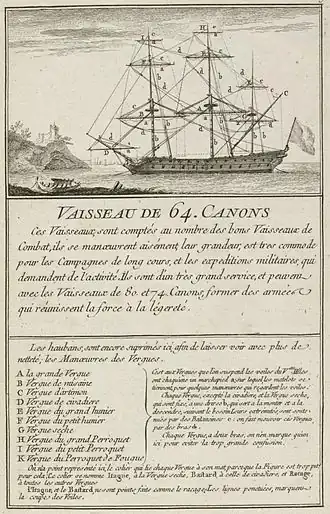 VAISSEAU DE 64. CANONS
Ces Vaisseaux, sont comptés au nombre des bons Vaisseaux de
Combat, ils se manœuvrent aisément, leur grandeur, est tres commode
pour les Campagnes de long cours, et les expeditions militaires, qui
demandent de l'activité. Ils sont d'un très grand service, et peuvent
avec les Vaisseaux de 80. et 74. Canons, former des armées
qui réunissent la force à la légereté.
Les haubans, sont encore suprimés ici, afin de laisser voir avec plus de
netteté, les Manœuvres des Vergues.
A la grande Vergue
B Vergue de misaine
C Vergue d'artimon
D Vergue de civadiere
E Vergue du grand hunier
F Vergue du petit hunier
G Vergue seche
H Vergue du grand Perroquet
I Vergue du petit Perroquet
K Vergue du Perroquet de Fougue
C'est aux Vergues que l'on suspend les voiles du V.au Elles
ont chacune un marchepied sur lequel les matelots se
tiennent, pour quelques manœuvres qui regardent les voiles
Chaque Vergue, excepté la civadiere, et la Vergue seche,
qui sont fixe, à une drisse b, qui sert à la monter et à la
descendre, suivant le besoin. Leurs extremités, sont soute-
nues par des Balancines c: on fait mouvoir ces Vergues
par des bras d.
Chaque Vergue, a deux bras, on n'en marque qu'un
ici pour eviter la trop grande confusion.
On n'a point representé ici, le colier qui lie chaque Vergue à son mat, parce que la Figure est trop petite
pour cela. Ce colier se nomme Itague, à la Vergue seche, Bastard, à celle de civadiere, et Racage,
à toutes les autres Vergues
l'Itague, et le Bastard, ne sont point faits comme le racage. Les lignes ponctuées, marquent
la coupe des Voiles.